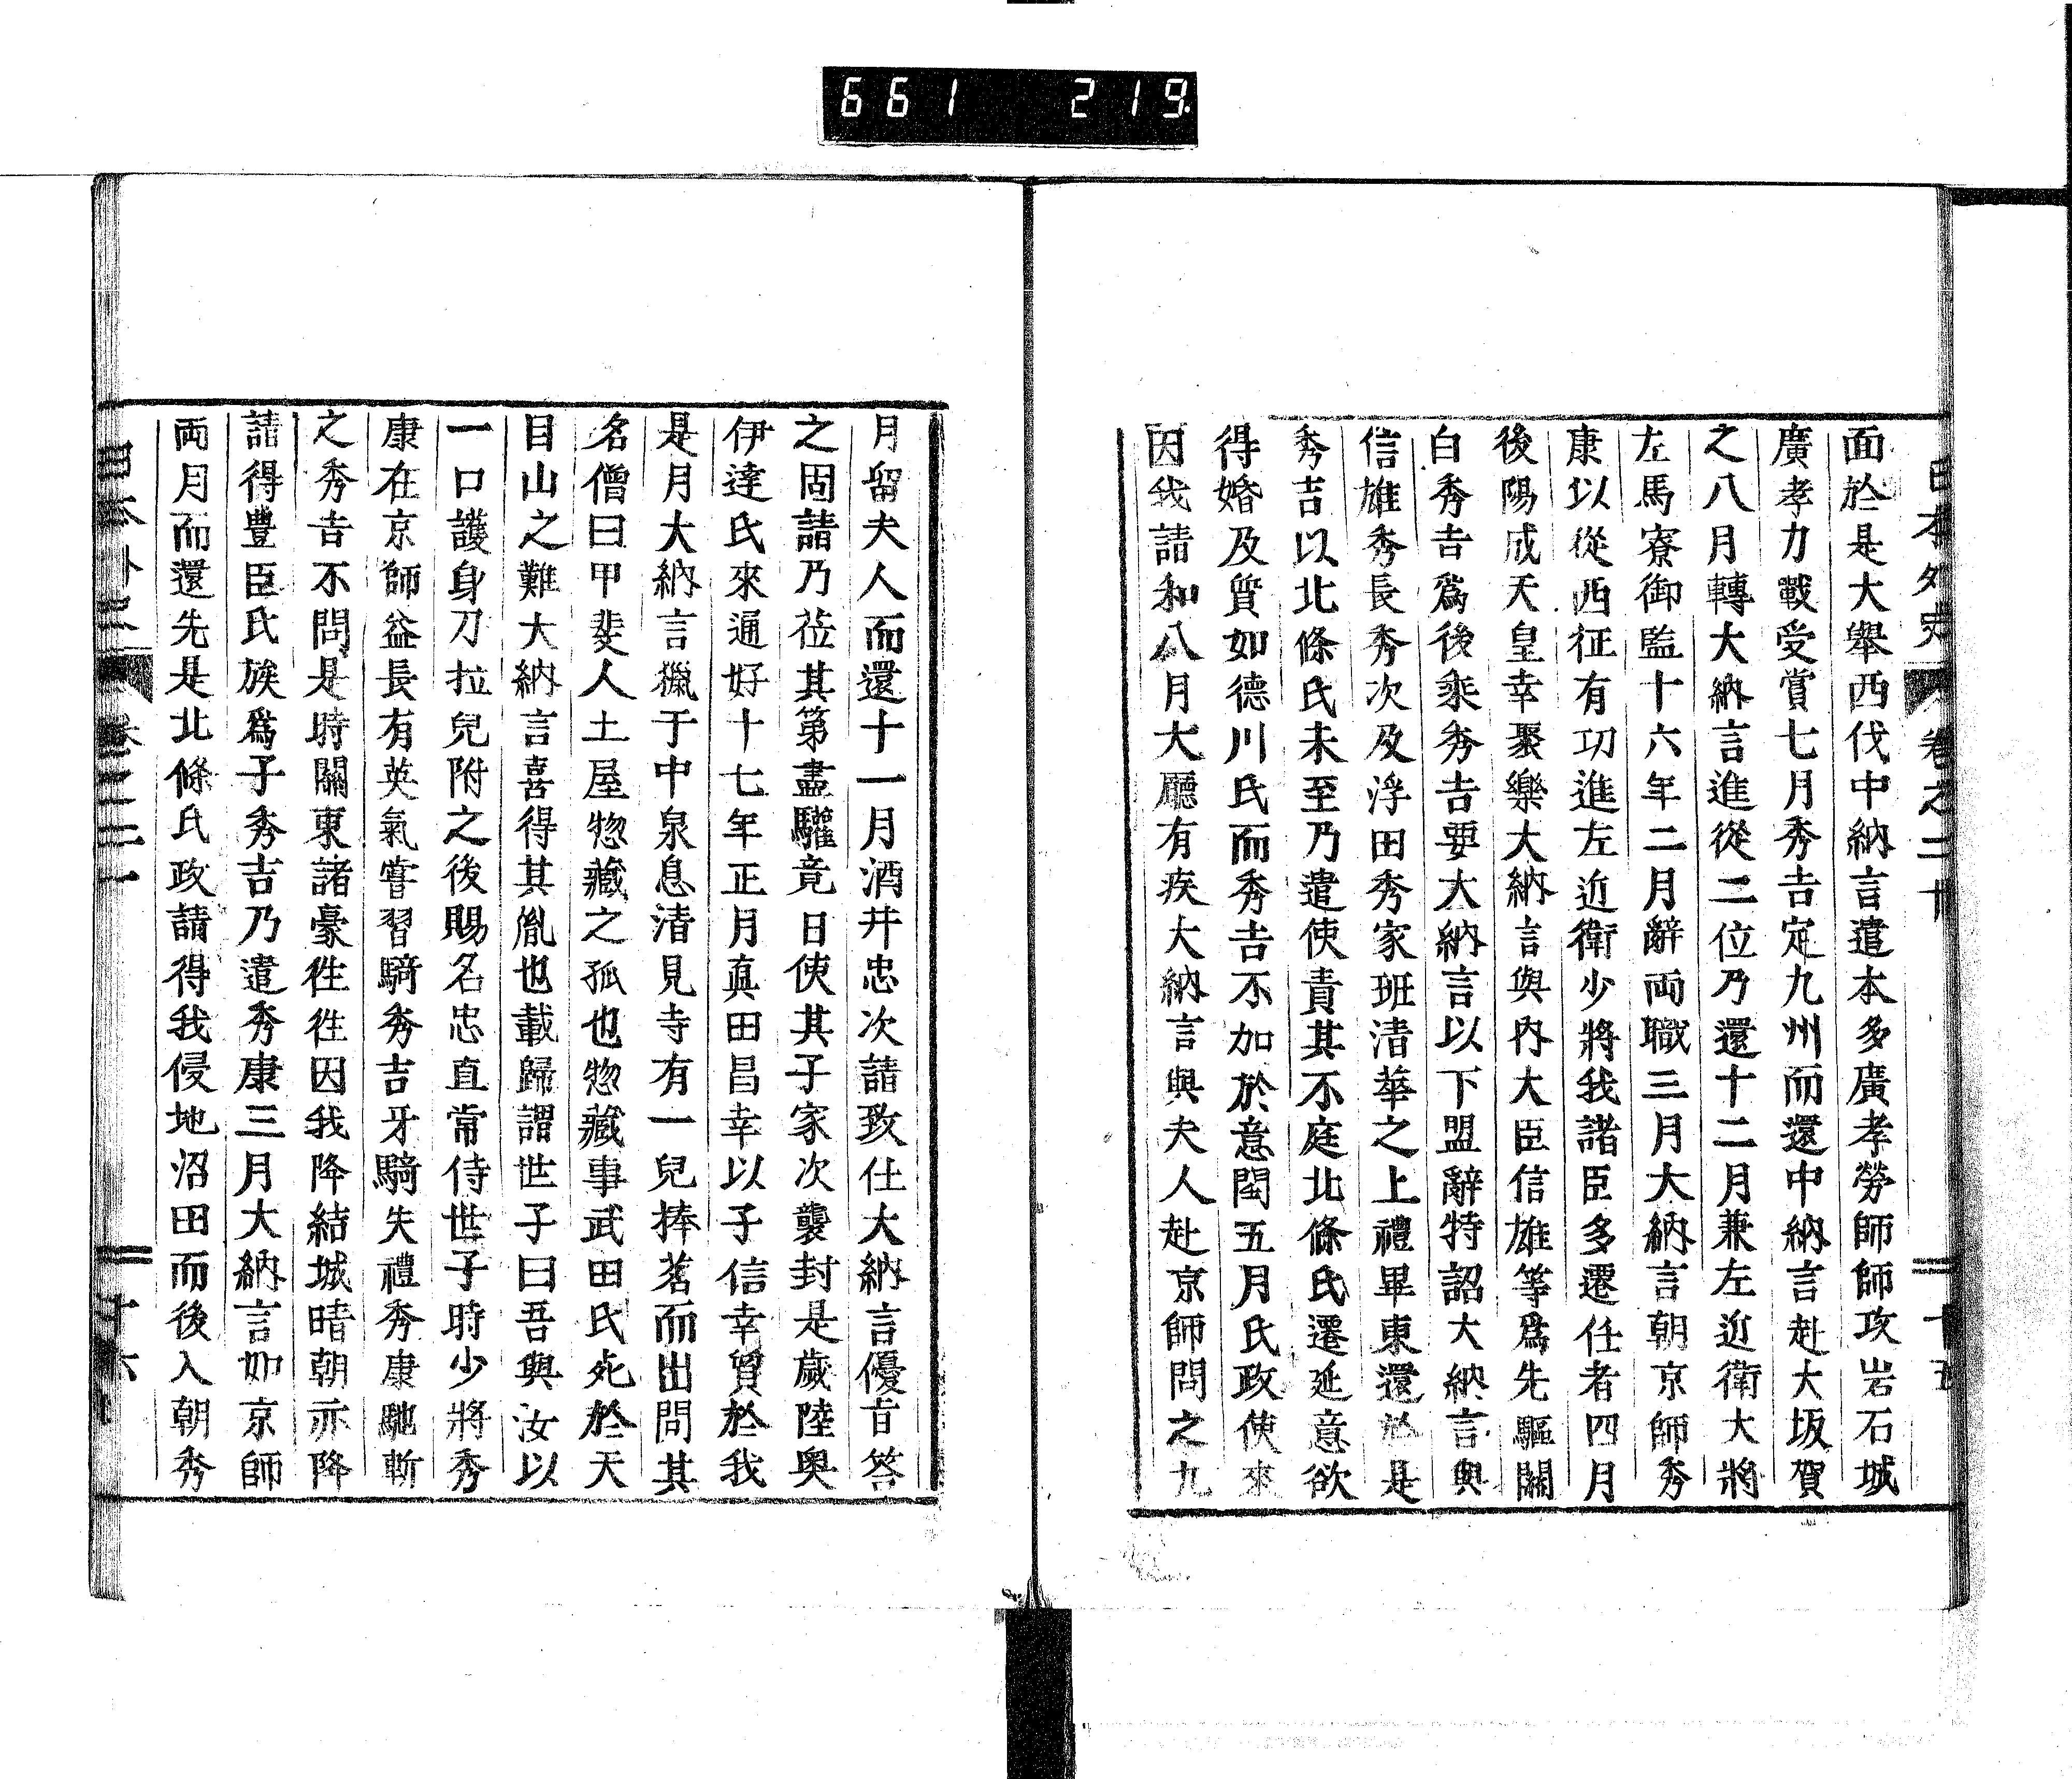 661 219
日本外史 卷之二十 十五
面於是大舉西伐中納言遣本多廣孝勞師師攻岩石城
廣孝力戰受賞七月秀吉定九州而還中納言赴大坂賀
之八月轉大納言進從二位乃還十二月兼左近衛大將
左馬寮御監十六年二月辭両職三月大納言朝京師秀
康以從西征有功進左近衛少將我諸臣多遷任者四月
後陽成天皇幸聚樂大納言與內大臣信雄等爲先驅關
白秀吉爲後乘秀吉要大納言以下盟辭特詔大納言與
信雄秀長秀次及浮田秀家班清華之上禮畢東還於是
秀吉以北條氏未至乃遣使責其不庭北條氏遷延意欲
得婚及質如德川氏而秀吉不加於意閏五月氏政使來
因我請和八月大廳有疾大納言與夫人赴京師問之九
月留夫人而還十一月酒井忠次請致仕大納言優旨答
之固請乃莅其第盡驩竟日使其子家次襲封是歲陸奧
伊達氏來通好十七年正月真田昌幸以子信幸質於我
是月大納言獵于中泉息清見寺有一兒捧茗而出問其
名僧曰甲斐人土屋惣藏之孤也惣藏事武田氏死於天
目山之難大納言喜得其胤也載歸謂世子曰吾與汝以
一口護身刀拉兒附之後賜名忠直常侍世子時少將秀
康在京師益長有英氣嘗習騎秀吉牙騎失禮秀康馳斬
之秀吉不問是時關東諸豪徃徃因我降結城晴朝亦降
請得豐臣氏族爲子秀吉乃遣秀康三月大納言如京師
両月而還先是北條氏政請得我侵地沼田而後入朝秀
日本外史 卷之二十 十六